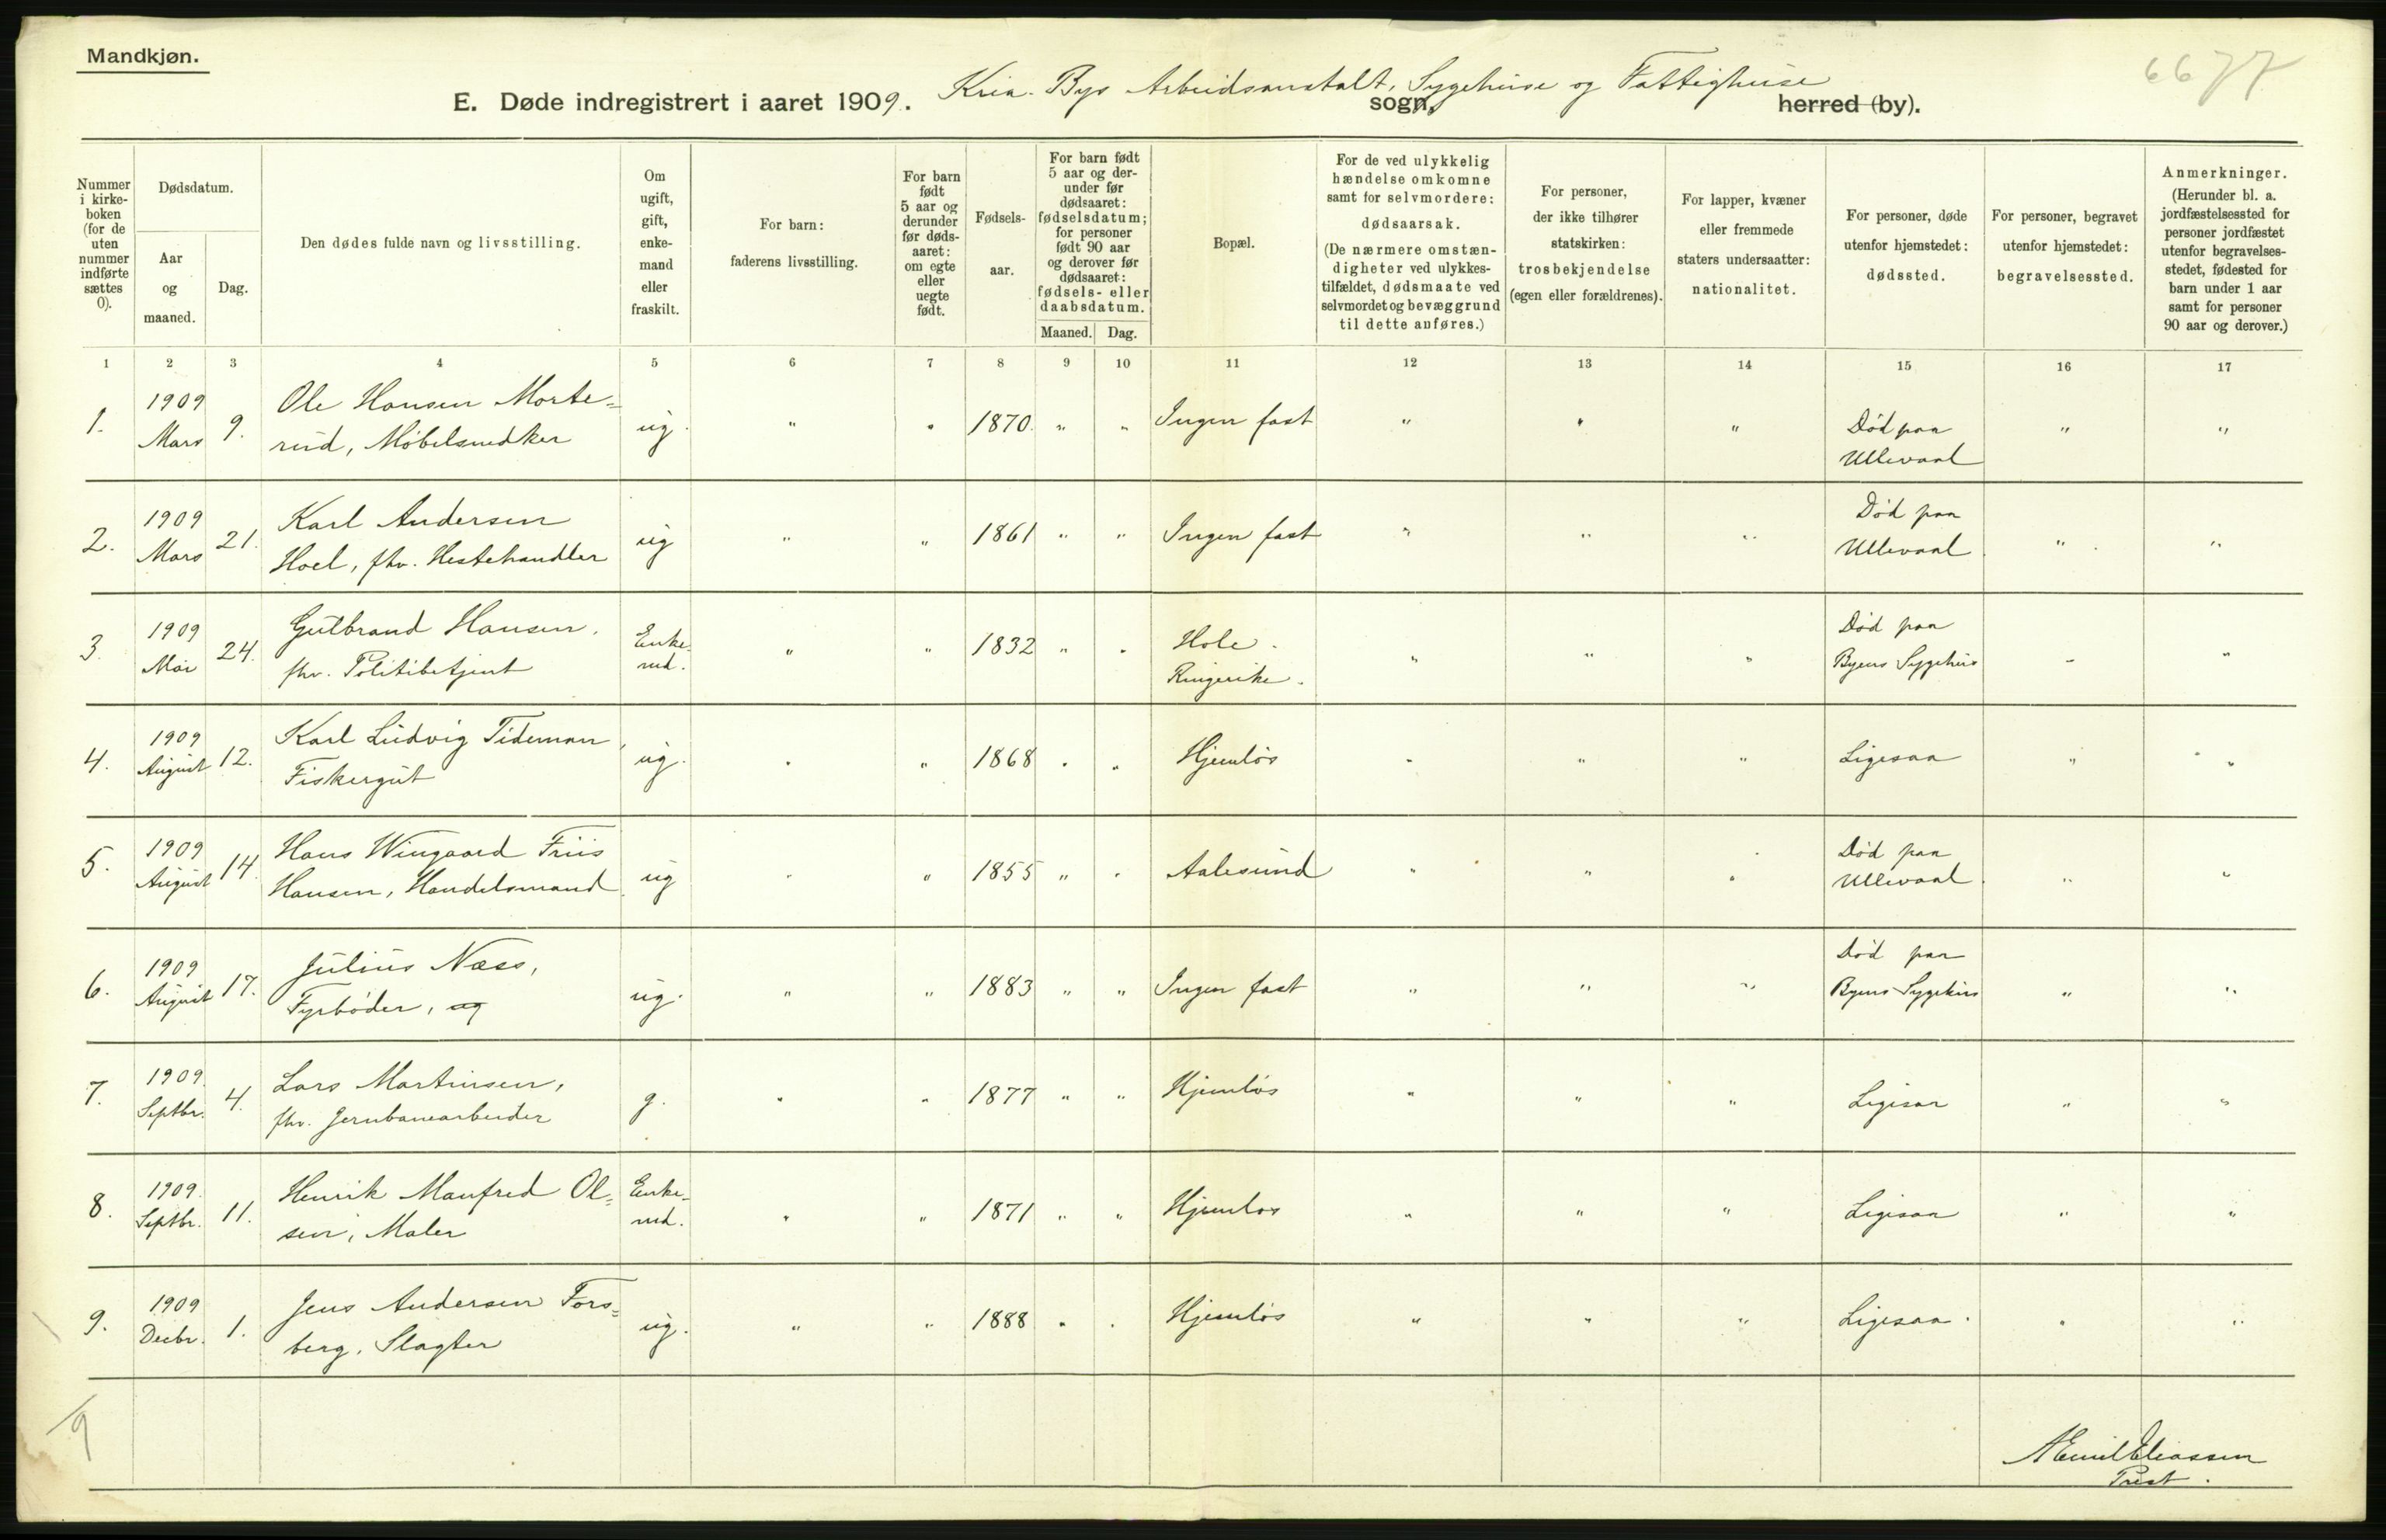 Mandkjøn.
6677
E. Døde indregistrert i aaret 1909. Kria. Bys Arbeidsanstalt, Sygehuse og Fattighuse
sogn, herred (by).
Nummer i kirke-boken (for de uten nummer indførte sættes 0).
Dødsdatum.
Aar og maaned.
Dag.
Den dødes fulde navn og livsstilling.
Om ugift, gift, enke-mand eller fraskilt.
For barn: faderens livsstilling.
For barn født 5 aar og derunder før døds-aaret: om egte eller uegte født.
Fødsels-aar.
For barn født 5 aar og der-under før dødsaaret: fødselsdatum; for personer født 90 aar og derover før dødsaaret: fødsels- eller daabsdatum.
Maaned. Dag.
Bopæl.
For de ved ulykkelig hændelse omkomne samt for selvmordere: dødsaarsak. (De nærmere omstæn-digheter ved ulykkes-tilfældet, dødsmaate ved selvmordet og bevæggrund til dette anføres.)
For personer, der ikke tilhører statskirken: trosbekjendelse (egen eller forældrenes).
For lapper, kvæner eller fremmede staters undersaatter: nationalitet.
For personer, døde utenfor hjemstedet: dødssted.
For personer, begravet utenfor hjemstedet: begravelsessted.
Anmerkninger. (Herunder bl. a. jordfæstelsessted for personer jordfæstet utenfor begravelses-stedet, fødested for barn under 1 aar samt for personer 90 aar og derover.)
1 2 3 4 5 6 7 8 9 10 11 12 13 14 15 16 17
1. 1909 Mars 9. Ole Hansen Morte=rud, Møbelsnedker ug. " " 1870. " " Ingen fast " " " Død paa Ullevaal " "
2. 1909 Mars 21. Karl Andersen Hoel, fhv. Hestehandler ug " " 1861 " " Ingen fast " " " Død paa Ullevaal " "
3. 1909 Mai 24. Gulbrand Hansen, fhv. Politibetjent Enke-md. " " 1832 " " Hole. Ringerike. " " " Død paa Byens Sygehus " "
4. 1909 August 12. Karl Ludvig Tideman, Fiskergut ug. " " 1868 " " Hjemløs " " " Ligesaa " "
5. 1909 August 14. Hans Wingaard Friis Hansen, Handelsmand ug " " 1855 " " Aalesund " " " Død paa Ullevaal " "
6. 1909 August 17. Julius Næss, Fyrbøder, ug ug. " " 1883 " " Ingen fast " " " Død paa Byens Sygehus " "
7. 1909. Septbr. 4. Lars Martinsen, fhv. Jernbanearbeider g. " " 1877 " " Hjemløs " " " Ligesaa " "
8. 1909. Septbr. 11. Henrik Manfred Ol=sen, Maler Enke-md. " " 1871 " " Hjemløs " " " Ligesaa " "
9. 1909 Decbr. 1. Jens Andersen Fors=berg, Slagter ug. " " 1888 " " Hjemløs " " " Ligesaa. " "
9
A Emil Eliassen
Prest.